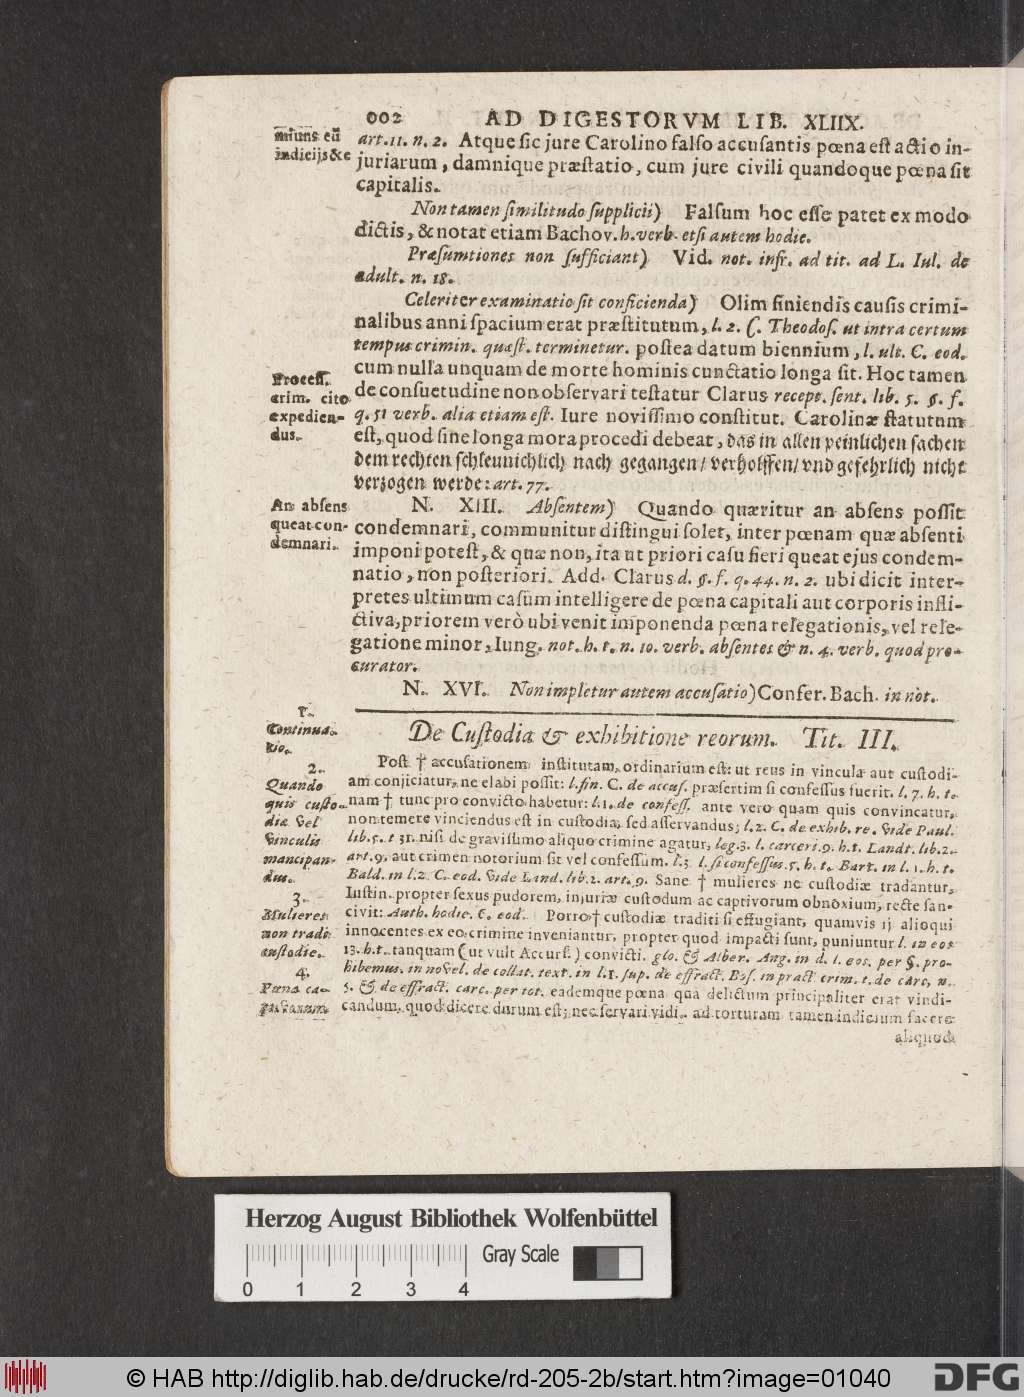 002 AD DIGESTORVM LIB. XLIIX.
minus eũ
indicijs &c
art. 11. n. 2. Atque sic jure Carolino falso accusantis pœna est actio in-
juriarum, damnique præstatio, cum jure civili quandoque pœna sit
capitalis.
Non tamen similitudo supplicii) Falsum hoc esse patet ex modo
dictis, & notat etiam Bachov. h. verb. etsi autem hodie.
Præsumtiones non sufficiant) Vid. not. infr. ad tit. ad L. Iul. de
adult. n. 18.
Celeriter examinatio sit conficienda) Olim finiendis causis crimi-
nalibus anni spacium erat præstitutum, l. 2. C. Theodos. ut intra certum
tempus crimin. quæst. terminetur. postea datum biennium, l. ult. C. eod.
cum nulla unquam de morte hominis cunctatio longa sit. Hoc tamen
Process.
crim. cito
expedien-
dus.
de consuetudine non observari testatur Clarus recept. sent. lib. 5. §. f.
q. 51 verb. alia etiam est. Iure novissimo constitut. Carolinæ statutum
est, quod sine longa mora procedi debeat, das in allen peinlichen sachen
dem rechten schleunichlich nach gegangen/ verholffen/ vnd gefehrlich nicht
verzogen werde: art. 77.
An absens
queat con-
demnari.
N. XIII. Absentem) Quando quæritur an absens possit
condemnari, communitur distingui solet, inter pœnam quæ absenti
imponi potest, & quæ non, ita ut priori casu fieri queat ejus condem-
natio, non posteriori. Add. Clarus d. §. f. q. 44. n. 2. ubi dicit inter-
pretes ultimum casum intelligere de pœna capitali aut corporis infli-
ctiva, priorem verò ubi venit imponenda pœna relegationis, vel rele-
gatione minor, Iung. not. h. t. n. 10. verb. absentes & n. 4. verb. quod pro-
curator.
N. XVI. Non impletur autem accusatio) Confer. Bach. in not.
De Custodia & exhibitione reorum. Tit. III.
1.
Continua-
tio.
2.
Quando
quis custo-
dia vel
vinculis
mancipan-
dus.
3.
Mulieres
non tradi
custodie.
4.
Pœna ca-
Post † accusationem institutam, ordinarium est: ut reus in vincula aut custodi-
am conjiciatur, ne elabi possit: l. fin. C. de accus. præsertim si confessus fuerit. l. 7. h. t.
nam † tunc pro convicto habetur: l. 1. de confess. ante vero quam quis convincatur,
non temere vinciendus est in custodia; sed asservandus; l. 2. C. de exhib. re. vide Paul.
lib. 5. t 31. nisi de gravissimo aliquo crimine agatur, leg. 3. l. carceri. 9. h.t. Landt. lib. 2.
art. 9. aut crimen notorium sit vel confessum. l. 3. l. si confessus. 5. h. t. Bart. in l. 1. h. t.
Bald. in l. 2. C. eod. vide Land. lib. 2. art. 9. Sane † mulieres ne custodiæ tradantur,
Iustin. propter sexus pudorem, injuriæ custodum ac captivorum obnoxium, recte san-
civit: Auth. hodie. C. eod. Porro † custodiæ traditi si effugiant, quamvis ij alioqui
innocentes ex eo crimine inveniantur, propter quod impacti sunt, puniuntur l. in eos
13. h.t. tanquam (ut vult Accurs.) convicti. glo. & Alber. Ang. in d. l. eos. per §. pro-
hibemus. in novel. de collat. text. in l. 1. sup. de effract. Bos. in pract crim. t. de carc, n.
5. & de effract. carc. per tot. eademque pœna qua delictum principaliter erat vindi-
candum, quod dicere durum est; nec servari vidi, ad torturam tamen indicium facere
aliquod
Herzog August Bibliothek Wolfenbüttel
Gray Scale
0 1 2 3 4
© HAB http://diglib.hab.de/drucke/rd-205-2b/start.htm?image=01040
DFG